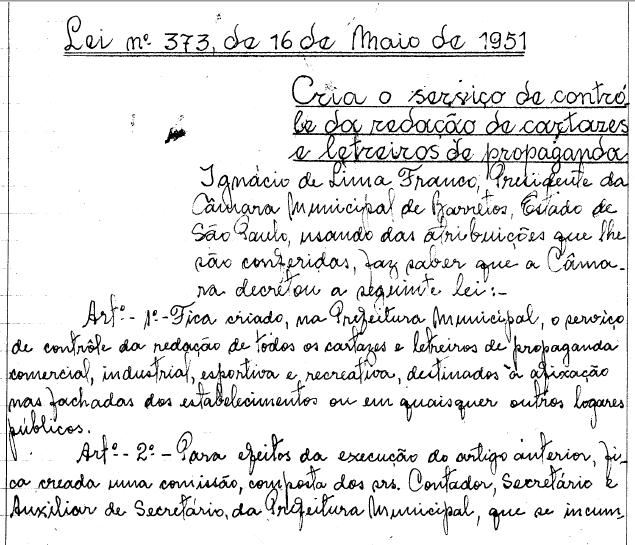 Lei nº 373, de 16 de Maio de 1951
Cria o serviço de contrô
le da redação de cartazes
e letreiros de propaganda
Ignácio de Lima Franco, Presidente da
Câmara Municipal de Barretos, Estado de
São Paulo, usando das atribuições que lhe
são conferidas, faz saber que a Câma-
ra decretou a seguinte lei:-
Artº- 1º- Fica criado, na Prefeitura Municipal, o serviço
de contrôle da redação de todos os cartazes e letreiros de propaganda
comercial, industrial, esportiva e recreativa, destinados à afixação
nas fachadas dos estabelecimentos ou em quaisquer outros logares
públicos.
Artº- 2º- Para efeitos da execução do artigo anterior, fi-
ca creada uma comissão, composta dos srs. Contador, Secretário e
Auxiliar de Secretário, da Prefeitura Municipal, que se incum-